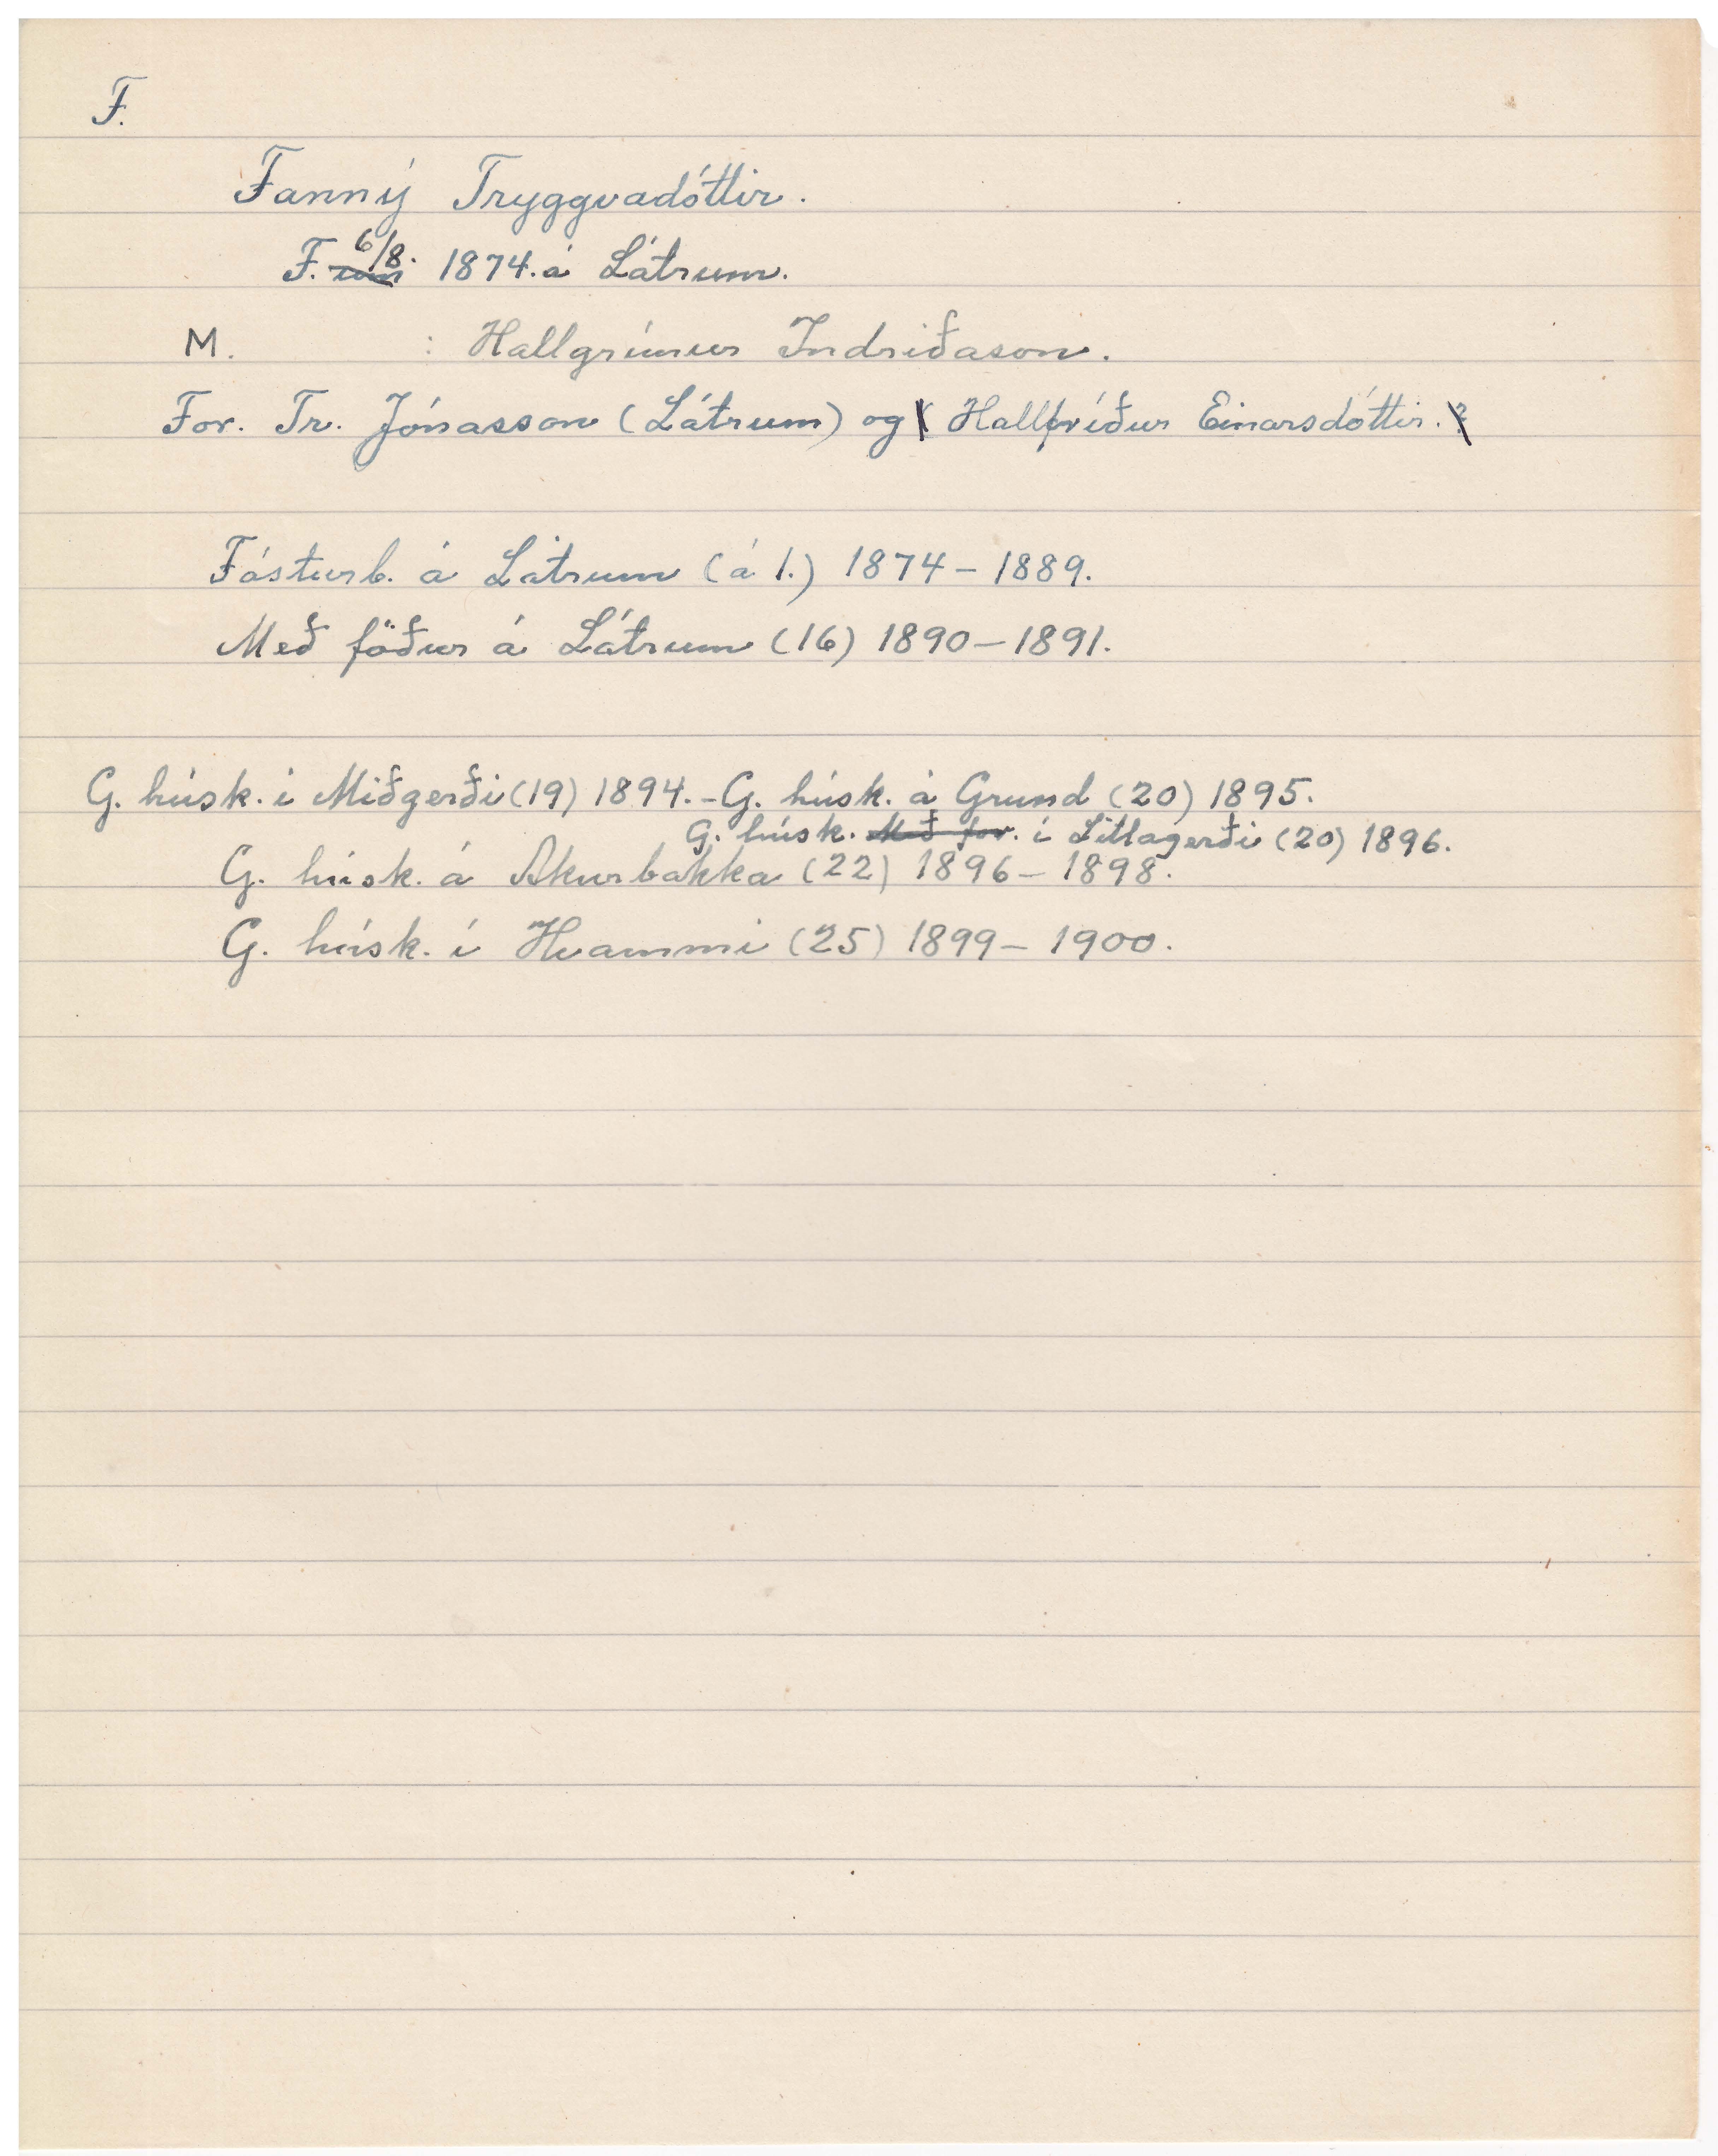 F.
Fanný Tryggvadóttir.
F. um 6/8. 1874. á Látrum.
M. : Hallgrímur Indriðason.
For. Tr. Jónasson (Látrum) og ( Hallfríður Einarsdóttir. ?
Fósturb. á Látrum (á 1.) 1874 - 1889.
Með föður á Látrum (16) 1890 - 1891.
G. húsk. í Miðgerði (19) 1894. - G. húsk. á Grund (20) 1895.
G. húsk. Með for. í Litlagerði (20) 1896.
G. húsk. á Akurbakka (22) 1896 - 1898.
G. húsk. í Hvammi (25) 1899 - 1900.